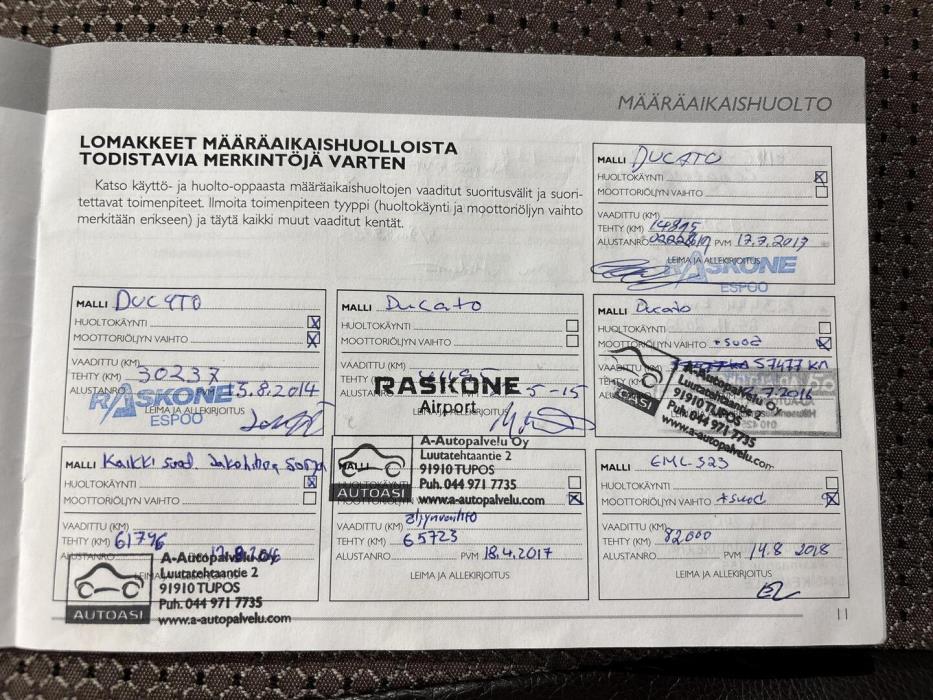 MÄÄRÄAIKAISHUOLTO
LOMAKKEET MÄÄRÄAIKAISHUOLLOISTA
TODISTAVIA MERKINTÖJÄ VARTEN
Katso käyttö- ja huolto-oppaasta määräaikaishuoltojen vaaditut suoritusvälit ja suori-
tettavat toimenpiteet. Ilmoita toimenpiteen tyyppi (huoltokäynti ja moottoriöljyn vaihto
merkitään erikseen) ja täytä kaikki muut vaaditut kentät.
MALLI DUCATO
HUOLTOKÄYNTI X
MOOTTORIÖLJYN VAIHTO
VAADITTU (KM)
TEHTY (KM)
ALUSTANRO PVM
LEIMA JA ALLEKIRJOITUS
RASKONE
ESPOO
MALLI DUCATO
HUOLTOKÄYNTI X
MOOTTORIÖLJYN VAIHTO X
VAADITTU (KM)
TEHTY (KM) 30237
ALUSTANRO 15.8.2014
RASKONE
LEIMA JA ALLEKIRJOITUS
ESPOO
MALLI Ducato
HUOLTOKÄYNTI
MOOTTORIÖLJYN VAIHTO
VAADITTU (KM)
TEHTY (KM)
RASKONE
Airport
5-15
MALLI Ducato
HUOLTOKÄYNTI
MOOTTORIÖLJYN VAIHTO +suod X
57477 KM
TEHTY (KM)
2016
AUTOASI
A-Autopalvelu Oy
Luutatehtaantie 2
91910 TUPOS
Puh. 044 971 7735
www.a-autopalvelu.com
MALLI Kaikki suod.
HUOLTOKÄYNTI X
MOOTTORIÖLJYN VAIHTO
VAADITTU (KM)
TEHTY (KM) 61796
ALUSTANRO
AUTOASI
A-Autopalvelu Oy
Luutatehtaantie 2
91910 TUPOS
Puh. 044 971 7735
www.a-autopalvelu.com
MALLI
HUOLTOKÄYNTI
MOOTTORIÖLJYN VAIHTO X
AUTOASI
A-Autopalvelu Oy
Luutatehtaantie 2
91910 TUPOS
Puh. 044 971 7735
www.a-autopalvelu.com
VAADITTU (KM)
TEHTY (KM) 65723
ALUSTANRO PVM 18.4.2017
LEIMA JA ALLEKIRJOITUS
MALLI EML-323
HUOLTOKÄYNTI
MOOTTORIÖLJYN VAIHTO +suod X
VAADITTU (KM)
TEHTY (KM) 82000
ALUSTANRO PVM 14.8 2018
LEIMA JA ALLEKIRJOITUS
11